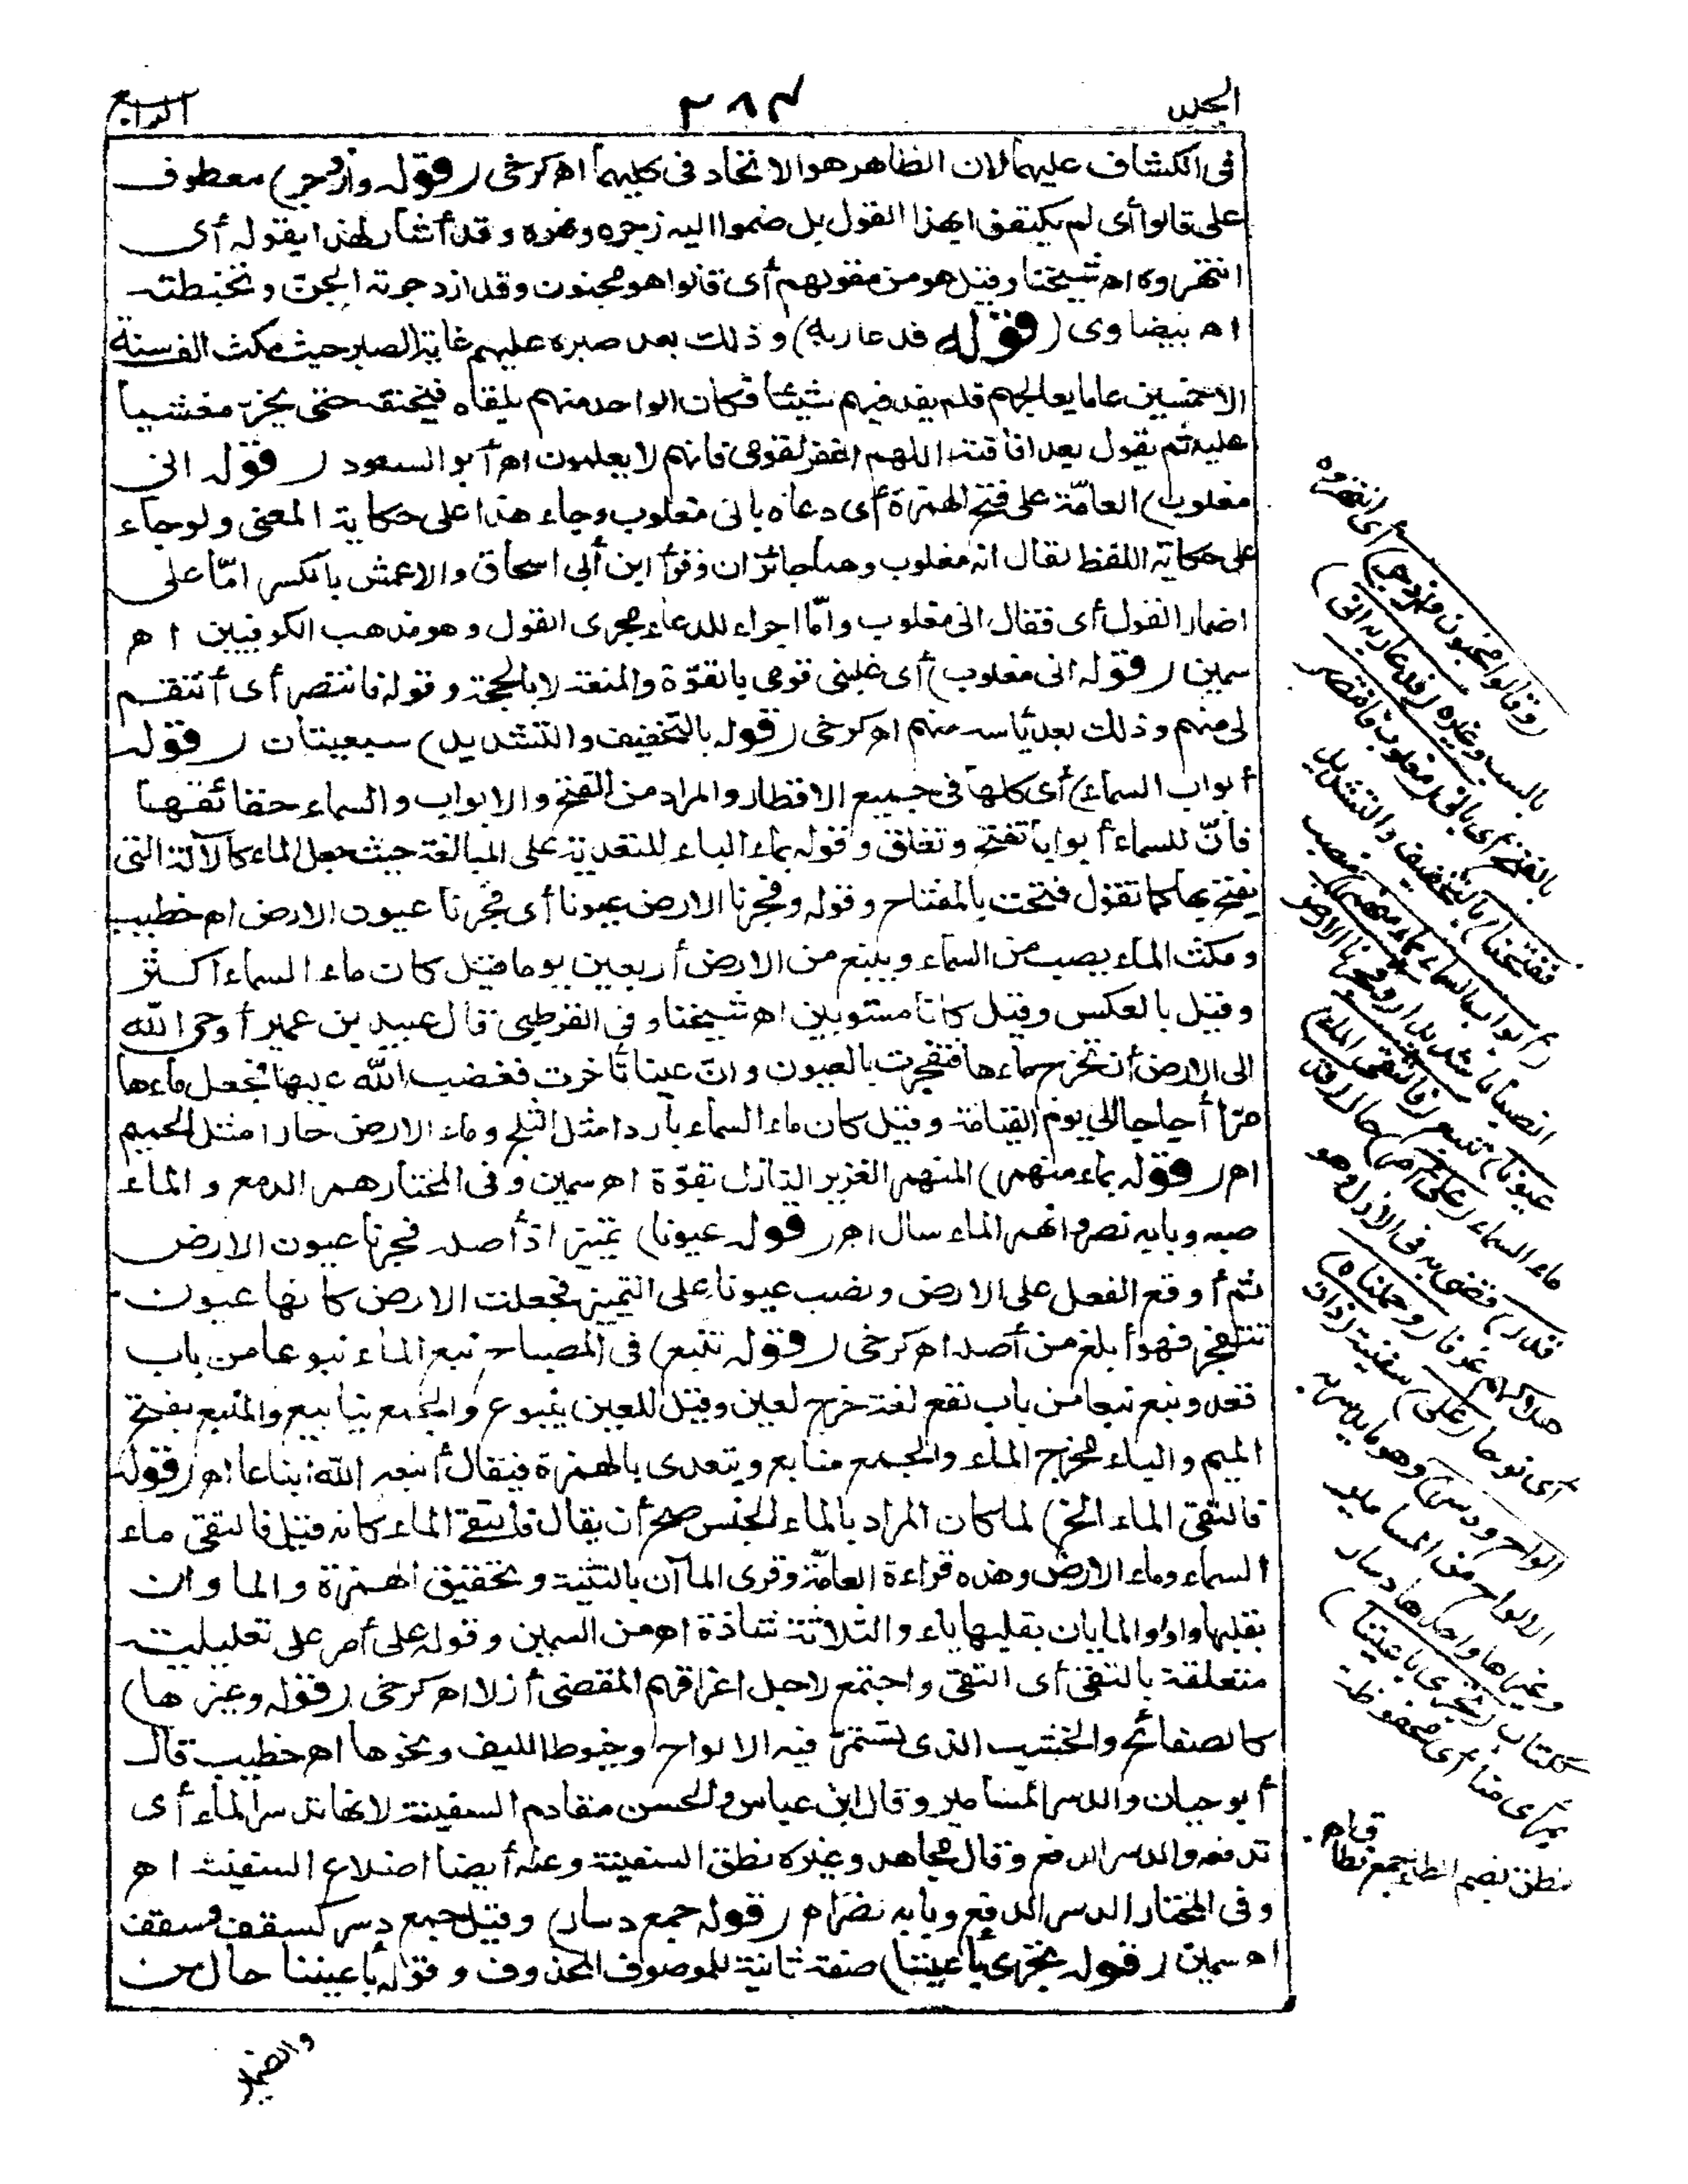 الجلد
٣٨٤
الرابع
في الكشاف عليهما لان الظاهر هو الاتحاد في كليهما اه كرخي (قوله وازدجر) معطوف
على قالوا أي لم يكتفوا بهذا القول بل ضموا اليه زجره ونحوه وقد أشار لهذا بقوله أي
انتهروه اه شيخنا وقيل هو من مقولهم أي قالوا هو مجنون وقد ازدجرته الجن وتخبطته
اه بيضاوى (قوله فدعا ربه) وذلك بعد صبره عليهم غاية الصبر حيث مكث الف سنة
الا خمسين عاما يعالجهم فلم يفد فيهم شيئا فكان الواحد منهم يلقاه فيخنقه حتى يخرّ مغشيا
عليه ثم يقول بعد افاقته اللهم اغفر لقومى فانهم لا يعلمون اه أبو السعود (قوله انى
مغلوب) العامّة على فتح الهمزة أي دعاه بانى مغلوب وجاء هذا على حكاية المعنى ولو جاء
على حكاية اللفظ لقال انه مغلوب وهما جائزان وقرأ ابن أبى اسحاق والاعمش بالكسر امّا على
اضمار القول أي فقال انى مغلوب وامّا اجراء للدعاء مجرى القول وهو مذهب الكوفيين اه
سمين (قوله انى مغلوب) أي غلبنى قومى بالقوّة والمنعة لا بالحجة وقوله فانتصر أي أنتقم
لى منهم وذلك بعد يأسه منهم اه كرخى (قوله بالتخفيف والتشديد) سبعيتان (قوله
أبواب السماء) أي كلها في جميع الاقطار والمراد من الفتح والابواب والسماء حقائقها
فانّ للسماء أبوابا تفتح وتغلق وقوله بماء الباء للتعدية على المبالغة حيث جعل الماء كالآلة التى
يفتح بها كما تقول فتحت بالمفتاح وقوله وفجرنا الارض عيونا أي فجرنا عيون الارض اه خطيب
ومكث الماء يصب من السماء وينبع من الارض أربعين يوما قيل كان ماء السماء أكثر
وقيل بالعكس وقيل كانا مستويين اه شيخنا وفى القرطبى قال عبيد بن عمير أوحى الله
الى الارض أن تخرج ماءها فتفجرت بالعيون وانّ عينا تأخرت فغضب الله عليها فجعل ماءها
مرّا أجاجا الى يوم القيامة وقيل كان ماء السماء باردا مثل الثلج وماء الارض حارا مثل الحميم
اه (قوله بماء منهمر) المنهمر الغزير النازل بقوّة اه سمين وفى المختار همر الدمع والماء
صبه وبابه نصر وانهمر الماء سال اه (قوله عيونا) تمييز اذ أصله فجرنا عيون الارض
ثم أوقع الفعل على الارض ونصب عيونا على التمييز فجعلت الارض كانها عيون
تتفجر فهو أبلغ من أصله اه كرخى (قوله تنبع) في المصباح نبع الماء نبوعا من باب
قعد ونبع نبعا من باب نفع لغة خرج لعين وقيل للعين ينبوع والجمع ينابيع والمنبع بفتح
الميم والباء مخرج الماء والجمع منابع ويتعدى بالهمزة فيقال أنبعه الله انباعا اه (قوله
فالتقى الماء الخ) لما كان المراد بالماء الجنس صح أن يقال فالتقى الماء كانه قيل فالتقى ماء
السماء وماء الارض وهذه قراءة العامّة وقرئ الماآن بالتثنية وتحقيق الهمزة والماوان
بقلبها واوا والمايان بقلبها ياء والثلاثة شاذة اه من السمين وقوله على أمر على تعليلية
متعلقة بالتقى أي التقى واجتمع لاجل اغراقهم المقضى أزلا اه كرخى (قوله وغيرها)
كالصفائح والخشب الذى تستمر فيه الالواح وخيوط الليف ونحوها اه خطيب قال
أبو حيان والدسر المسامير وقال ابن عباس والحسن مقادم السفينة لانها تدسر الماء أي
تدفعه والدسر الدفع وقال مجاهد وغيره نطق السفينة وعنه أيضا اضلاع السفينة اه
وفى المختار الدسر الدفع وبابه نصر اه (قوله جمع دسار) وقيل جمع دسر كسقف وسقف
اه سمين (قوله تجرى بأعيننا) صفة ثانية للموصوف المحذوف وقوله بأعيننا حال من
والضمير
(وقالوا مجنون وازدجر) أي انتهروه
بالسب وغيره (فدعا ربه انى)
بالفتح أي بانى (مغلوب فانتصر
ففتحنا) بالتخفيف والتشديد
(أبواب السماء بماء منهمر) منصب
انصبابا شديدا (وفجرنا الارض
عيونا) تنبع (فالتقى الماء)
ماء السماء (على أمر) حال (قد
قدر) قضى به في الازل وهو
هلاكهم غرقا (وحملناه)
أي نوحا (على) سفينة (ذات
ألواح ودسر) وهو ما
الالواح من المسامير
وغيرها واحدها دسار
ككتاب (تجرى بأعيننا)
بمرأى منا أي محفوظة
نطق بضم الطاء جمع نطاق اه